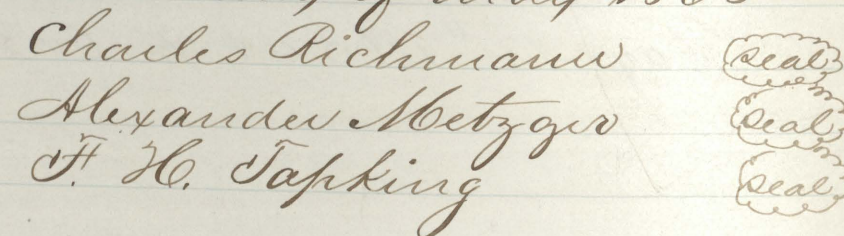 Charles Richmann seal
Alexander Metzger seal
F. H. Tapking seal